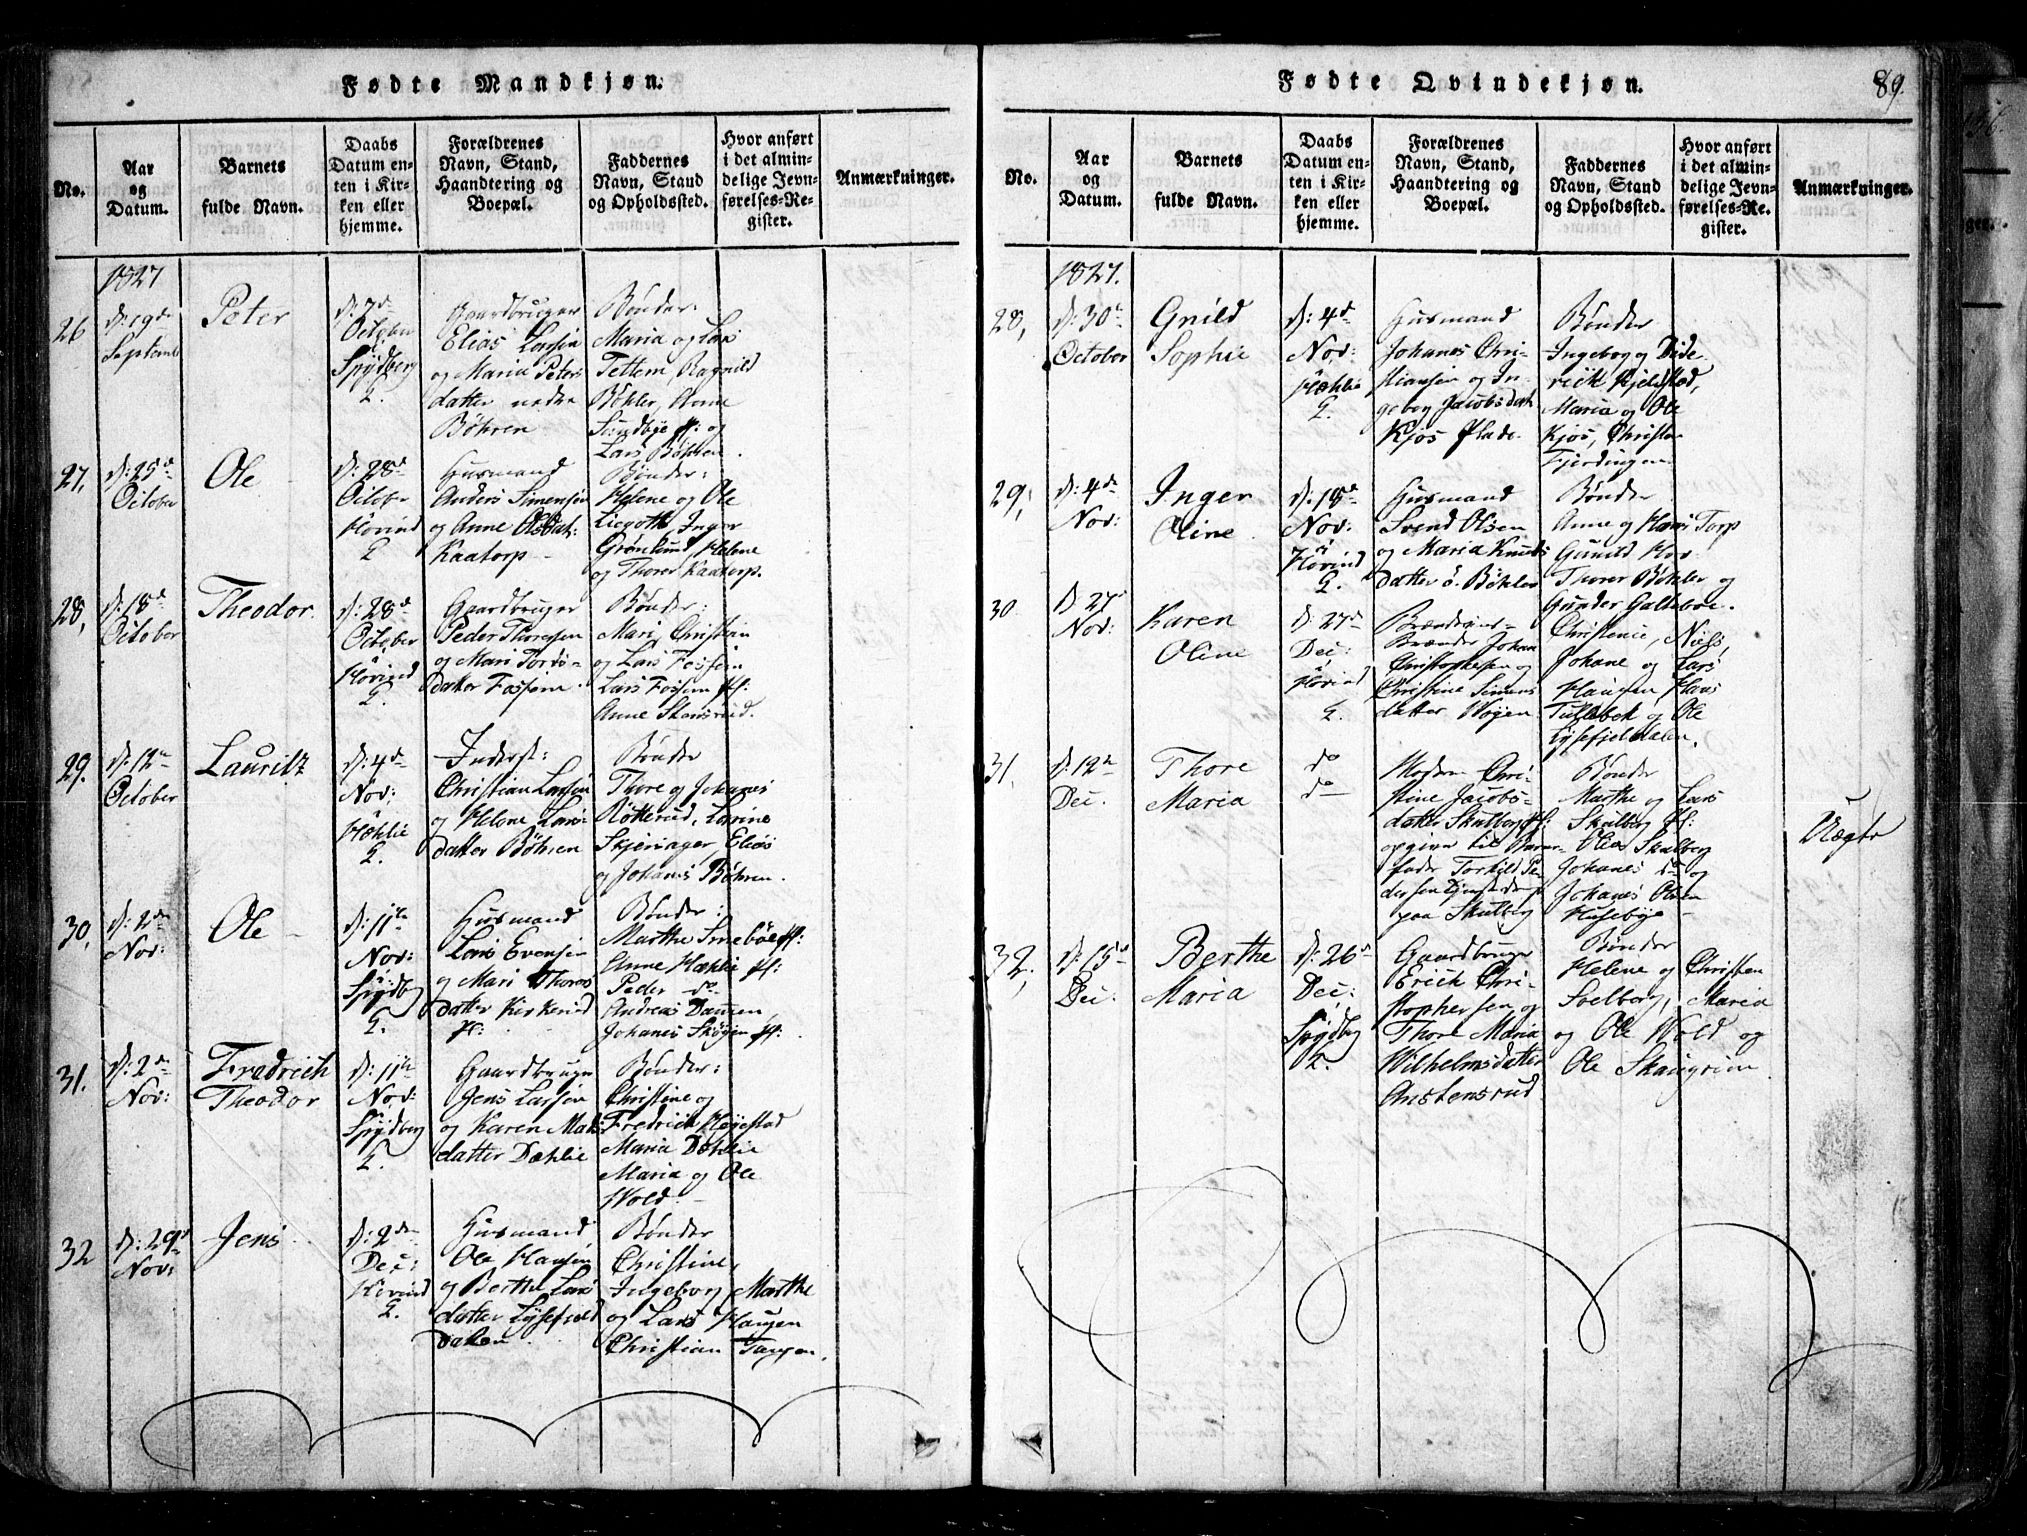 Fødte Mandkjøn.
No.
Aar
og
Datum.
Barnets
fulde Navn.
Daabs
Datum en-
ten i Kir-
ken eller
hjemme.
Forældrenes
Navn, Stand,
Haandtering og
Boepæl.
Faddernes
Navn, Stand
og Opholdssted.
Hvor anført
i det almin-
delige Jevn-
førelses-Re-
gister.
Anmærkninger.
1827
26
d: 19de
Septemb
Peter
d: 7d
October
Spydberg
K.
Gaardbruger
Elias Larsen
og Maria Peters
datter nedre
Bøhren
Bønder:
Maria og Lars
Tettem, Ragnild
Bøhler, Anne
Sundbye pf: og
Lars Bøhren.
27,
d: 25d
October
Ole
d: 28d
October
Høvind
K
Husmand
Anders Simensen
og Anne Olsdat:
Kaatorp
Bønder:
Helene og Ole
Liegoth, Inger
Grønlund, Helene
og Thorer Kaatorp.
28,
d: 18d
October
Theodor.
d: 28d
October
Høvind
K.
Gaardbruger
Peder Thoresen
og Mari Tords-
datter Fossum.
Bønder:
Mari, Christian
og Lars Fossum
Lars Fossum pf:
Anne Stensrud.
29.
d: 12te
October
Lauritz
d: 4de
Nov:
Hæhlie
K.
Inderst:
Christian Larsen
og Helene Lars-
datter Bøhren
Bønder
Thore og Johanes
Røtterud, Lovine
Skjeniager, Elias
og Johanis Bøhren.
30,
d: 2den
Nov:
Ole
d: 11te
Nov:
Spydbg
K.
Husmand
Lars Evensen
og Mari Thores
datter Kirkerud
pl:
Bønder:
Marthe Smebøl pf:
Anne Hæhlie pf:
Peder do
Andreas Dammen,
Johanes Skogen pf:
31.
d: 2den
Nov:
Fredrich
Theodor
d: 11te
Nov:
Spydberg
K.
Gaardbruger
Jens Larsen
og Karen Mats
datter Dæhlie
Bønder:
Christine og
Fredrich Høyestad
Maria Dæhlie
Maria og Ole
Wold.
32
d: 29d
Nov:
Jens
d: 2den
Dec:
Hovind
K.
Husmand
Ole Hansen
og Berthe Lars
datter Lysefield
dalen
Bønder
Christine,
Ingeborg, Marthe
og Lars Haugen
Christian Tangen.
Fødte Qvindekjøn.
89.
No.
Aar
og
Datum.
Barnets
fulde Navn.
Daabs
Datum en-
ten i Kir-
ken eller
hjemme.
Forældrenes
Navn, Stand,
Haandtering og
Boepæl.
Faddernes
Navn, Stand
og Opholdssted.
Hvor anført
i det almin-
delige Jevn-
førelses-Re-
gister.
Anmærkninger.
1827.
28,
d: 30te
October
Gnild
Sophie
d: 4de
Nov:
Hæhlie
K.
Husmand
Johanes Chri-
stiansen og In-
geborg Jacobsdatt
Kjos Plads.
Bønder
Ingebog og Dide
rich Kjelstad,
Maria og Ole
Kjos, Christen
Fjerdingen
29,
d: 4de
Nov:
Inger
Oline
d: 18d
Nov:
Høvind
K.
Husmand
Svend Olsen
og Maria Knuds
datter ö. Bøhler
Bønder
Anne og Hans Torp
Gunild Hov
Thorer Bøhler og
Gunder Galteboe.
30
D 27d
Nov:
Karen
Oline
d: 27d
Dec:
Høvind
K.
Brændeviins-
Brænder Johan
Christophersen og
Christine Simens
datter Wøyen
Christence, Niels,
Johane og Lars
Haugen, Hans
Tullebok og Ole
Lysefjeldalen.
31.
d: 12te
Dec.
Thore
Maria
do
do
Moder Chri-
stine Jacobs-
datter Skulberg pf:
opgiven til Barne-
fader Torkild Pe-
dersen
paa Skulberg
Bønder
Marthe og Lars
Skulberg pf:
Olea Skulberg
Johanes do og
Johanes Olsen
Husebye
Uægte
32,
d: 15d
Dec:
Berthe
Maria
d: 26d
Dec:
Spydbg
K.
Gaardbruger
Erich Chri-
stophersen og
Thore Maria
Wilhelmsdatter
Austensrud.
Bønder
Helene og Christen
Soelberg, Maria
og Ole Wold og
Ole Skaugrim